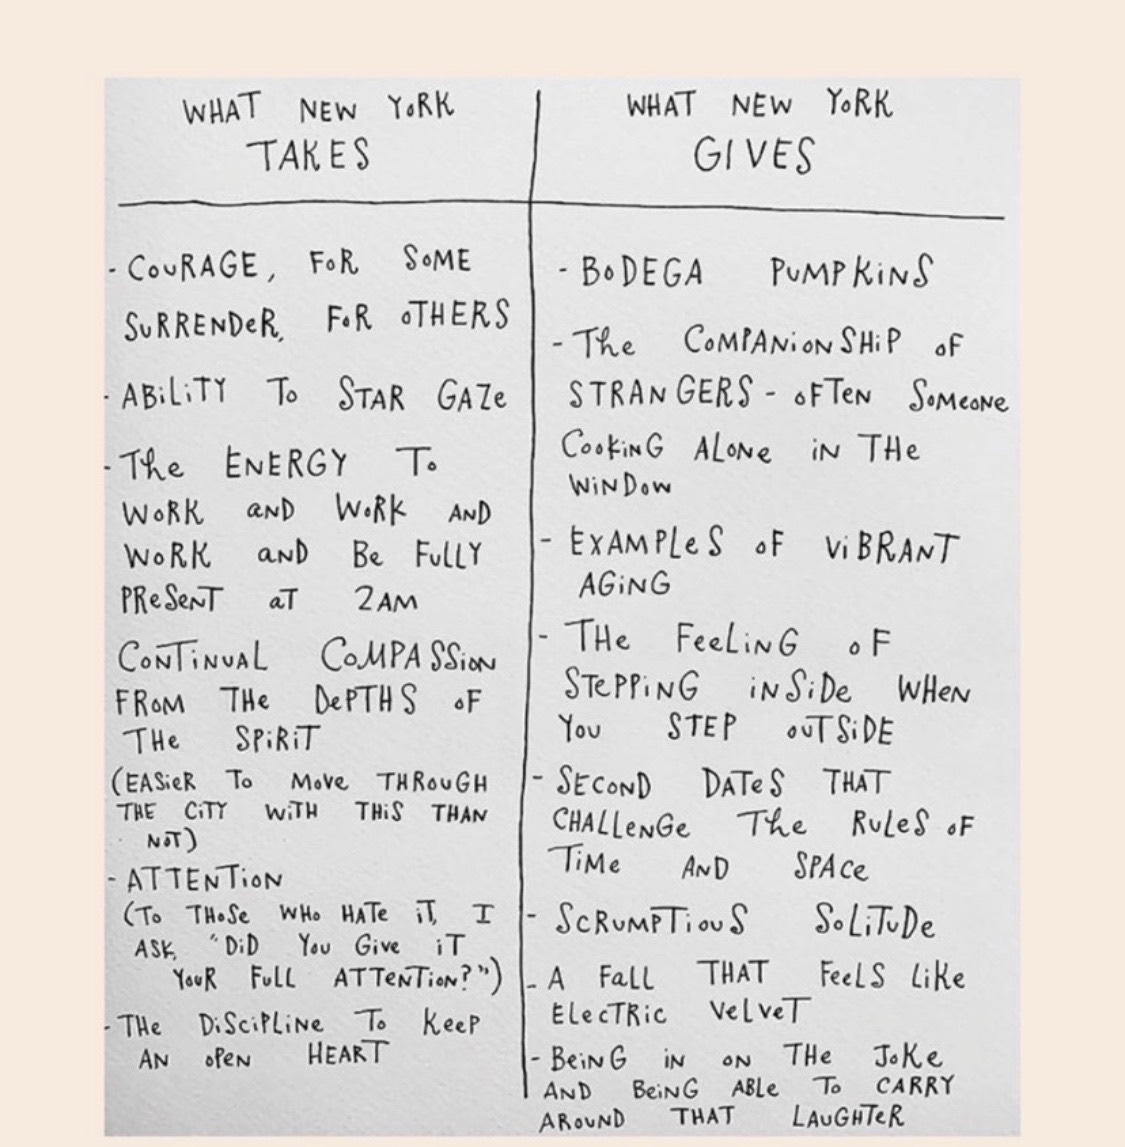 WHAT NEW YORK
TAKES
- COURAGE, FOR SOME
SURRENDER, FOR OTHERS
- ABILITY TO STAR GAZE
- THE ENERGY TO
WORK AND WORK AND
WORK AND BE FULLY
PRESENT AT 2AM
CONTINUAL COMPASSION
FROM THE DEPTHS OF
THE SPIRIT
(EASIER TO MOVE THROUGH
THE CITY WITH THIS THAN
NOT)
- ATTENTION
(TO THOSE WHO HATE IT, I
ASK, "DID YOU GIVE IT
YOUR FULL ATTENTION?")
- THE DISCIPLINE TO KEEP
AN OPEN HEART
WHAT NEW YORK
GIVES
- BODEGA PUMPKINS
- THE COMPANIONSHIP OF
STRANGERS - OFTEN SOMEONE
COOKING ALONE IN THE
WINDOW
- EXAMPLES OF VIBRANT
AGING
- THE FEELING OF
STEPPING INSIDE WHEN
YOU STEP OUTSIDE
- SECOND DATES THAT
CHALLENGE THE RULES OF
TIME AND SPACE
- SCRUMPTIOUS SOLITUDE
- A FALL THAT FEELS LIKE
ELECTRIC VELVET
- BEING IN ON THE JOKE
AND BEING ABLE TO CARRY
AROUND THAT LAUGHTER